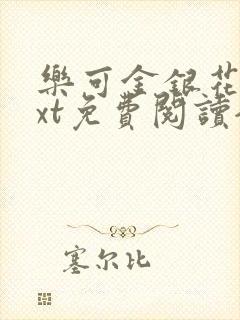 樂可金銀花
xt免費閱讀
塞尔比